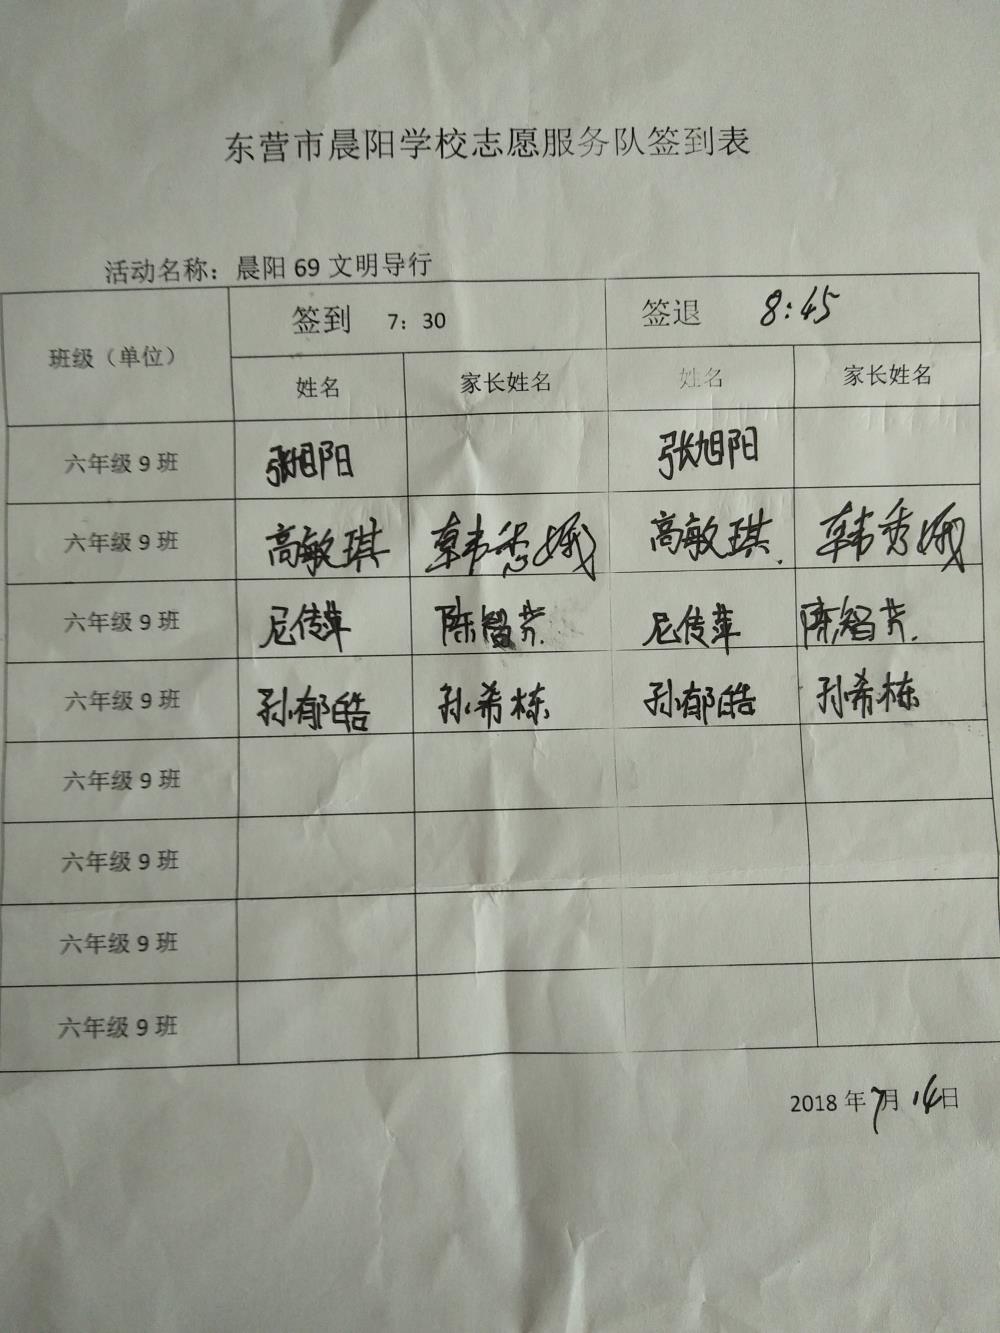 东营市晨阳学校志愿服务队签到表
活动名称：晨阳 69 文明导行
班级（单位） 签到 7：30 签退 8:45
姓名 家长姓名 姓名 家长姓名
六年级 9 班 张旭阳 张旭阳
六年级 9 班 高敏琪 韩秀娥 高敏琪 韩秀娥
六年级 9 班 尼传萍 陈智芳 尼传萍 陈智芳
六年级 9 班 孙郁皓 孙希栋 孙郁皓 孙希栋
六年级 9 班
六年级 9 班
六年级 9 班
六年级 9 班
2018 年 7 月 14 日